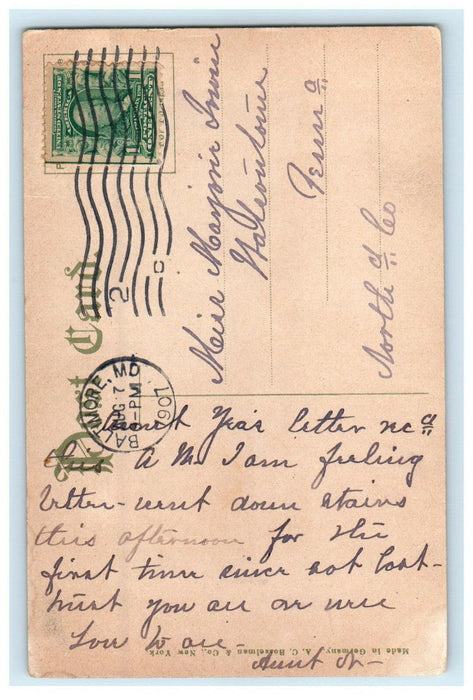 Post Card.
BALTIMORE, MD.
AUG 7
-PM
1907
2
C
ONE CENT
Miss Marjorie Irvin
Watsontown
Penna
North'd Co
Year letter rec'd
this A M. I am feeling
better - went down stairs
this afternoon for the
first time since sat last -
trust you all are well
Love to all -
Aunt
Made in Germany. A. C. Bosselman & Co., New York